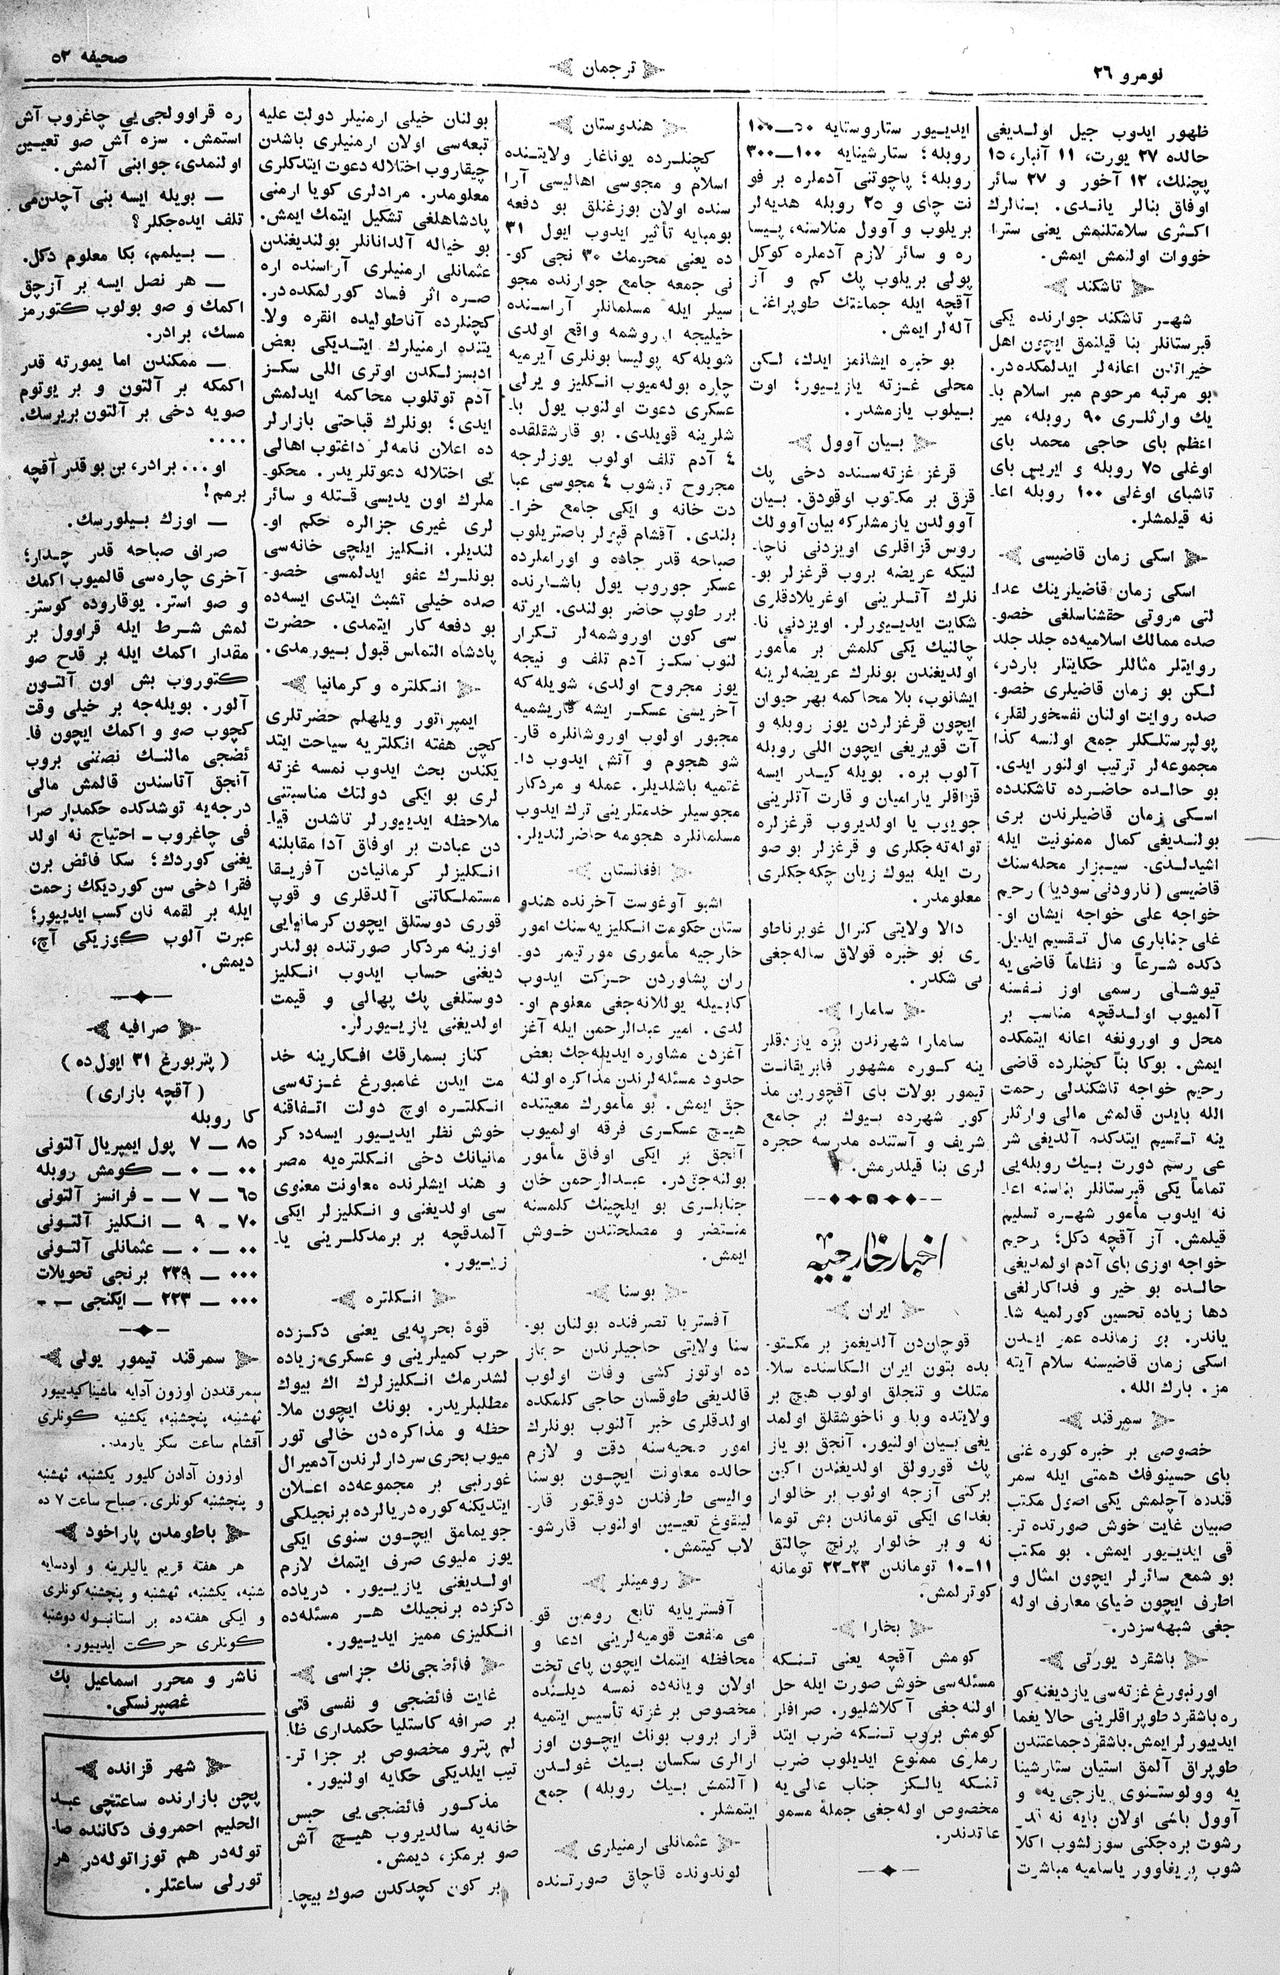 نومرو ۲٦
ترجمان
صحیفه ٥٢
ظهور ایدوب جیل اولدیغی
حالده ۲۷ یورت، ۱۱ آنبار، ۱٥
پچنلك، ۱۲ آخور و ۲۷ سائر
اوفاق بنالر یاندی. بنالرك
اكثری سلامتلنمش یعنی سترا
خووات اولنمش ایمش.
تاشكند
شهر تاشكند جوارنده یكی
قبرستانلر بنا قیلنمق ایچون اهل
خیراتدن اعانه‌لر ایدلمكده‌در.
بو مرتبه مرحوم میر اسلام با‌
یك وارثلری ۹۰ روبله، میر
اعظم بای حاجی محمد بای
اوغلی ۷٥ روبله و ایریس بای
تاشبای اوغلی ۱۰۰ روبله اعا‌
نه قیلمشلر.
اسكی زمان قاضیسی
اسكی زمان قاضیلرینك عدا‌
لتی مروتی حقشناسلغی خصو‌
صده ممالك اسلامیه‌ده جلد جلد
روایتلر مثاللر حكایتلر باردر،
لكن بو زمان قاضیلری خصو‌
صده روایت اولنان نفسخورلقلر،
پولپرستلكلر جمع اولنسه كذا
مجموعه‌لر ترتیب اولنور ایدی.
بو حالده حاضرده تاشكندده
اسكی زمان قاضیلرندن بری
بولندیغی كمال ممنونیت ایله
اشیدلدی. سیبزار محله‌سنك
قاضیسی (نارودنی سودیا) رحیم
خواجه علی خواجه ایشان او‌
غلی جنابلری مال تقسیم ایدیل‌
دكده شرعاً و نظاماً قاضی یه
تیوشلی رسمی اوز نفسنه
آلمیوب اولدقچه مناسب بر
محل و اورونغه اعانه ایتمكده
ایمش. بوكا بناً كچنلرده قاضی
رحیم خواجه تاشكندلی رحمت
الله بایدن قالمش مالی وارثلر
ینه تقسیم ایتدكده آلدیغی شر
عی رسم دورت بیك روبله‌یی
تماماً یكی قبرستانلر بناسنه اعا‌
نه ایدوب مأمور شهره تسلیم
قیلمش. آز آقچه دكل؛ رحیم
خواجه اوزی بای آدم اولمدیغی
حالده بو خیر و فداكارلغی
دها زیاده تحسین كورلمیه شا‌
یاندر. بو زمانده عمر ایدن
اسكی زمان قاضیسنه سلام آیته
مز. بارك الله.
سمرقند
خصوصی بر خبره كوره غنی
بای حسینوفك همتی ایله سمر
قندده آچلمش یكی اصول مكتب
صبیان غایت خوش صورتده تر‌
قی ایدییور ایمش. بو مكتب
بو شمع سائرلر ایچون امثال و
اطرف ایچون ضیای معارف اوله
جغی شبهه‌سزدر.
باشقرد یورتی
اورنبورغ غزته‌سی یازدیغنه كو
ره باشقرد طوپراقلرینی حالا یغما
ایدییورلر ایمش. باشقرد جماعتندن
طوپراق آلمق استیان ستارشینا
یه وولوستنوی یازجی یه و
آوول باشی اولان بایه نه ند‌
رشوت برەجكنی سوزلشوب اكلا
شوب پریغاوور یاسامیه مباشرت
ایدییور ستاروستایه ٥۰—۱۰۰
روبله؛ ستارشینایه ۱۰۰—۳۰۰
روبله؛ پاچوتنی آدملره بر فو
نت چای و ۲٥ روبله هدیه‌لر
بریلوب و آوول منلاسنه، پیسا
ره و سائر لازم آدملره كوكل
پولی بریلوب پك كم و آز
آقچه ایله جماعتك طوپراغنی
آله‌لر ایمش.
بو خبره ایشانمز ایدك، لكن
محلی غزته یازییور؛ اوت
بیلوب یازمشدر.
بیان آوول
قرغز غزته‌سنده دخی پك
قزق بر مكتوب اوقودق. بیان
آوولدن یازمشلركه بیان‌آوولك
روس قزاقلری اویزدنی ناچا‌
لنیكه عریضه بروب قرغزلر بو‌
نلرك آتلرینی اوغریلادقلری
شكایت ایدییورلر. اویزدنی نا‌
چالنیك یكی كلمش بر مأمور
اولدیغندن بونلرك عریضه‌لرینه
ایشانوب، بلا محاكمه بهر حیوان
ایچون قرغزلردن یوز روبله و
آت قویریغی ایچون اللی روبله
آلوب بره. بویله كیدر ایسه
قزاقلر یارامیان و قارت آتلرینی
جویوب یا اولدیروب قرغزلره
توله‌ته‌جكلری و قرغزلر بو صو
رت ایله بیوك زیان چكه‌جكلری
معلومدر.
دالا ولایتی كنرال غوبرناطو
ری بو خبره قولاق ساله‌جغی
بی شكدر.
سامارا
سامارا شهرندن بزه یازدقلر
ینه كوره مشهور فابریقانت
تیمور بولات بای آقچورین مذ
كور شهرده بیوك بر جامع
شریف و آستنده مدرسه حجره
لری بنا قیلدرمش.
اخبار خارجیه
ایران
قوچان‌دن آلدیغمز بر مكتو‌
بده بتون ایران الكاسنده سلا‌
متلك و تنجلق اولوب هیچ بر
ولایتده وبا و ناخوشقلق اولمد
یغی بیان اولنیور. آنجق بو یاز
پك قورولق اولدیغندن اكین
بركتی آزجه اولوب بر خالوار
بغدای ایكی توماندن بش توما
نه و بر خالوار پرنچ چالتق
۱۰-۱۱ توماندن ۲۲-۲۳ تومانه
كوترلمش.
بخارا
كومش آقچه یعنی تنكه
مسئله‌سی خوش صورت ایله حل
اولنه‌جغی آكلاشلیور. صرافلر
كومش بروب تنكه ضرب ایتد
رملری ممنوع ایدیلوب ضرب
تنكه یالكز جناب عالی یه
مخصوص اوله‌جغی جملهٔ مسمو
عاتدندر.
هندوستان
كچنلرده یوناغار ولایتنده
اسلام و مجوسی اهالیسی آرا
سنده اولان بوزغنلق بو دفعه
بومبایه تأثیر ایدوب ایول ۳۱
ده یعنی محرمك ۳۰ نجی كو‌
نی جمعه جامع جوارنده مجو
سیلر ایله مسلمانلر آراسنده
خیلیجه اوروشمه واقع اولدی
شویله‌كه پولیسا بونلری آیرمیه
چاره بوله‌میوب انكلیز و یرلی
عسكری دعوت اولنوب یول با‌
شلرینه قویلدی. بو قارشقلقده
٤ آدم تلف اولوب یوزلرجه
مجروح توشوب ٤ مجوسی عبا
دت خانه و ایكی جامع خرا‌
بلندی. آقشام قپولر باصتریلوب
صباحه قدر جاده و اوراملرده
عسكر جوروب یول باشلرنده
برر طوپ حاضر بولندی. ایرته
سی كون اوروشمه‌لر تكرار
لنوب سكز آدم تلف و نیجه
یوز مجروح اولدی، شویله‌كه
آخریسی عسكر ایشه قاریشمیه
مجبور اولوب اوروشانلره قار‌
شو هجوم و آتش ایدوب دا‌
غتمیه باشلدیلر. عمله و مردكار
مجوسیلر خدمتلرینی ترك ایدوب
مسلمانلره هجومه حاضرلندیلر.
افغانستان
اشبو آوغوست آخرنده هندو
ستان حكومت انكلیزیه‌سنك امور
خارجیه مأموری مورتیمر دو‌
ران پشاوردن حركت ایدوب
كابیله یوللانه‌جغی معلوم او‌
لدی. امیر عبدالرحمن ایله آغز
آغزدن مشاوره ایدیله‌جك بعض
حدود مسئله‌لرندن مذاكره اولنه
جق ایمش. بو مأمورك معیتنده
هیچ عسكری فرقه اولمیوب
آنجق بر ایكی اوفاق مأمور
بولنه‌جق‌در. عبدالرحمن خان
جنابلری بو ایلچینك كلمسنه
منتضر و مصلحتندن خوش
ایمش.
بوسنا
آفستریا تصرفنده بولنان بو‌
سنا ولایتی حاجیلرندن حجاز
ده اوتوز كشی وفات اولوب
قالدیغی طوقسان حاجی كلمكده
اولدقلری خبر آلنوب بونلرك
امور صحیه‌سنه دقت و لازم
حالده معاونت ایچون بوسنا
والیسی طرفندن دوقتور قار‌
لینقوغ تعیین اولنوب قارشو‌
لاب كیتمش.
رومینلر
آفستریایه تابع رومین قو‌
می منفعت قومیه‌لرینی ادعا و
محافظه ایتمك ایچون پای تخت
اولان ویانه‌ده نمسه دیلنده
مخصوص بر غزته تأسیس ایتمیه
قرار بروب بونك ایچون اوز
ارالری سكسان بیك غولدن
(آلتمش بیك روبله) جمع
ایتمشلر.
عثمانلی ارمنیلری
لوندونده قاچاق صورتنده
بولنان خیلی ارمنیلر دولت علیه
تبعه‌سی اولان ارمنیلری باشدن
چیقاروب اختلاله دعوت ایتدكلری
معلومدر. مرادلری كویا ارمنی
پادشاهلغی تشكیل ایتمك ایمش.
بو خیاله آلدانانلر بولندیغندن
عثمانلی ارمنیلری آراسنده اره
صره اثر فساد كورلمكده‌در.
كچنلرده آناطولیده انقره ولا‌
یتنده ارمنیلرك ایتدیكی بعض
ادبسزلكدن اوتری اللی سكز
آدم توتلوب محاكمه ایدلمش
ایدی؛ بونلرك قباحتی بازارلر
ده اعلان نامه‌لر داغتوب اهالی
یی اختلاله دعوتلریدر. محكو‌
ملرك اون یدیسی قتله و سائر
لری غیری جزالره حكم او‌
لندیلر. انكلیز ایلچی خانه‌سی
بونلرك عفو ایدلمسی خصو‌
صده خیلی تشبث ایتدی ایسه‌ده
بو دفعه كار ایتمدی. حضرت
پادشاه التماس قبول بیورمدی.
انكلتره و كرمانیا
ایمپراتور ویلهلم حضرتلری
كچن هفته انكلتریه سیاحت ایتد
یكندن بحث ایدوب نمسه غزته
لری بو ایكی دولتك مناسبتنی
ملاحظه ایدییورلر تاشدن قیا‌
دن عبادت بر اوفاق آدا مقابلنه
انكلیزلر كرمانیادن آفریقا
مستملكاتنی آلدقلری و قوپ
قوری دوستلق ایچون كرمانیایی
اوزینه مردكار صورتنده بولندر
دیغنی حساب ایدوب انكلیز
دوستلغی پك پهالی و قیمت
اولدیغنی یازییورلر.
كناز بسمارقك افكارینه خد
مت ایدن غامبورغ غزته‌سی
انكلتره اوچ دولت اتفاقنه
خوش نظر ایدییور ایسه‌ده كر
مانیانك دخی انكلتره‌یه مصر
و هند ایشلرنده معاونت معنوی
سی اولدیغنی و انكلیزلر ایكی
آلمدقچه بر برمدكلرینی یا‌
زییور.
انكلتره
قوهٔ بحریه‌یی یعنی دكزده
حرب كمیلرینی و عسكری زیاده
لشدرمك انكلیزلرك اك بیوك
مطلبلریدر. بونك ایچون ملا‌
حظه و مذاكره‌دن خالی تور
میوب بحری سردارلرندن آدمیرال
غورنبی بر مجموعه‌ده اعلان
ایتدیكنه كوره دریالرده برنجیلكی
جویمامق ایچون سنوی ایكی
یوز ملیوی صرف ایتمك لازم
اولدیغنی یازییور. دریاده
دكزده برنجیلك هر مسئله‌ده
انكلیزی ممیز ایدییور.
فائضجی‌نك جزاسی
غایت فائضجی و نفسی قتی
بر صرافه كاستلیا حكمداری ظا
لم پترو مخصوص بر جزا تر‌
تیب ایلدیكی حكایه اولنیور.
مذكور فائضجی‌یی حبس
خانه‌یه سالدیروب هیچ آش
صو برمكز، دیمش.
بر كون كچدكدن صوك بیچا‌
ره قراوولجی‌یی چاغروب آش
استمش. سزه آش صو تعیین
اولنمدی، جوابنی آلمش.
— بویله ایسه بنی آچدن‌می
تلف ایده‌جكلر؟
— بیلمم، بكا معلوم دكل.
— هر نصل ایسه بر آزجق
اكمك و صو بولوب كتورمز
مسك، برادر.
— ممكندن اما یمورته قدر
اكمكه بر آلتون و بر یوتوم
صویه دخی بر آلتون بریرسك.
. . . .
او... برادر، بن بو قدر آقچه
برمم!
— اوزك بیلورسك.
صراف صباحه قدر چیدار؛
آخری چاره‌سی قالمیوب اكمك
و صو استر. یوقاروده كوستر‌
لمش شرط ایله قراوول بر
مقدار اكمك ایله بر قدح صو
كتوروب بش اون آلتون
آلور. بویله‌جه بر خیلی وقت
كچوب صو و اكمك ایچون فا‌
ئضجی مالنك نصفنی بروب
آنجق آتاسندن قالمش مالی
درجه‌یه توشدكده حكمدار صرا
فی چاغروب - احتیاج نه اولد
یغنی كوردك؛ سكا فائض برن
فقرا دخی سن كوردیكك زحمت
ایله بر لقمه نان كسب ایدییور؛
عبرت آلوب كوزیكی آچ،
دیمش.
صرافیه
(پتربورغ ۳۱ ایول ده)
(آقچه بازاری)
كا روبله
۸٥ — ۷ پول ایمپریال آلتونی
۰۰ — ۰ — كومش روبله
٦٥ — ۷ — فرانسز آلتونی
۷۰ — ۹ — انكلیز آلتونی
۰۰ — ۰ — عثمانلی آلتونی
۰۰۰ — ۲۳۹ برنجی تحویلات
۰۰۰ — ۲۲۳ — ایكنجی — -
سمرقند تیمور یولی
سمرقنددن اوزون آدایه ماشینا كیدییور
ثهشنبه، پنچشنبه، یكشنبه كونلری
آقشام ساعت سكز یارمده.
اوزون آدادن كلیور یكشنبه، ثهشنبه
و پنچشنبه كونلری. صباح ساعت ۷ ده
باطومدن پاراخود
هر هفته قریم یالیلرینه و اودسایه
شنبه، یكشنبه، ثهشنبه و پنچشنبه كونلری
و ایكی هفته‌ده بر استانبوله دوشنبه
كونلری حركت ایدییور.
ناشر و محرر اسماعیل بك
غصپرنسكی.
شهر قزانده
پچن بازارنده ساعتچی عبد
الحلیم احمروف دكاننده صا‌
توله‌در هم توزاتوله‌در هر
تورلی ساعتلر.